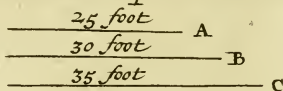 25 foot A
30 foot B
35 foot C